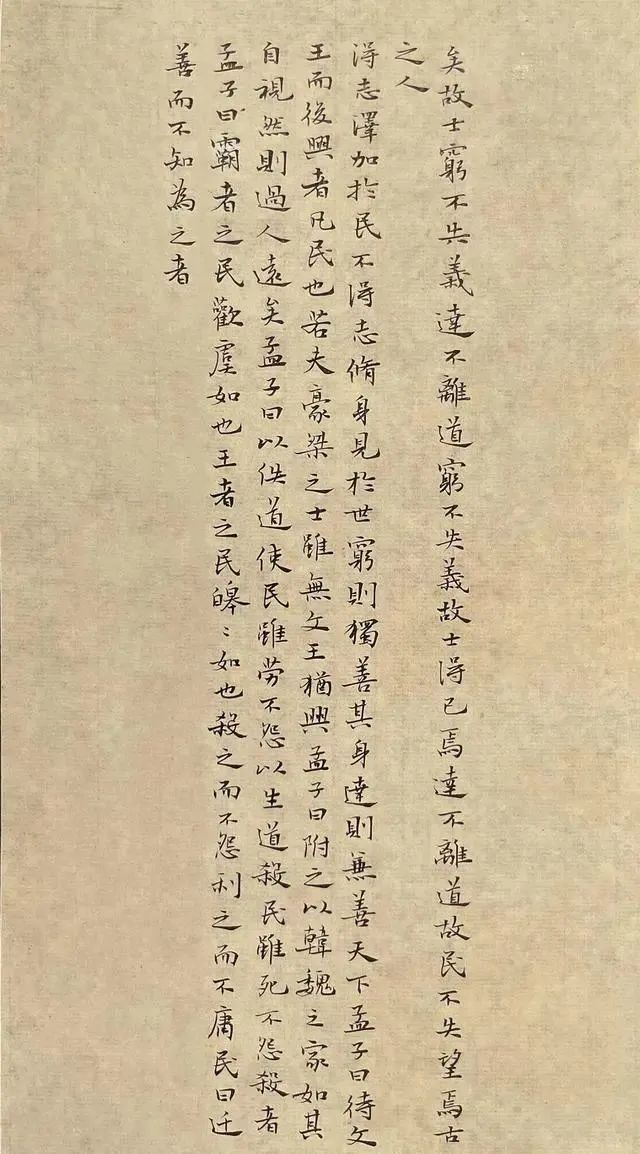 矣故士窮不失義達不離道窮不失義故士得己焉達不離道故民不失望焉古
之人
得志澤加於民不得志脩身見於世窮則獨善其身達則兼善天下孟子曰待文
王而後興者凡民也若夫豪桀之士雖無文王猶興孟子曰附之以韓魏之家如其
自視然則過人遠矣孟子曰以佚道使民雖勞不怨以生道殺民雖死不怨殺者
孟子曰霸者之民歡虞如也王者之民皞〻如也殺之而不怨利之而不庸民曰迁
善而不知為之者